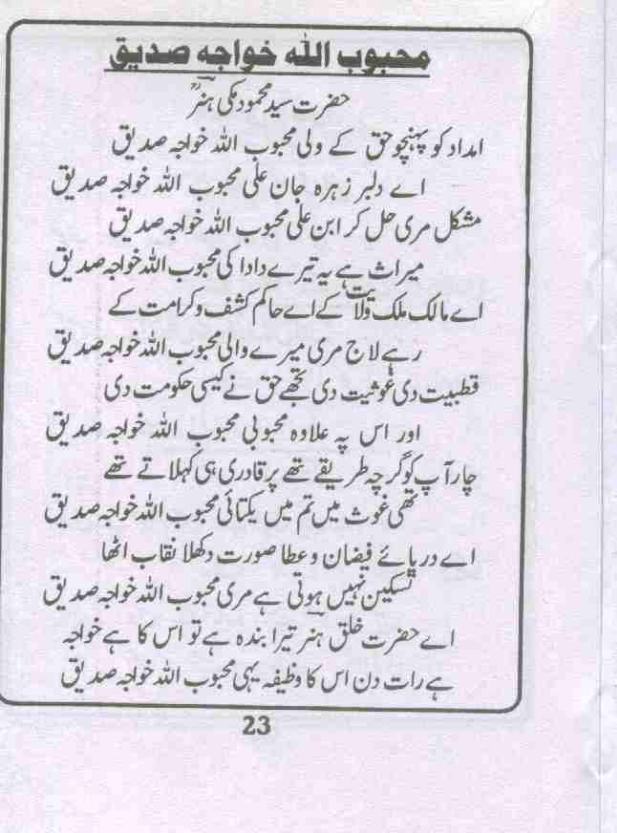 محبوب اللہ خواجہ صدیق
حضرت سید محمود مکی ہنرؒ
امداد کو پہنچو حق کے ولی محبوب اللہ خواجہ صدیق
اے دلبر زہرہ جان علی محبوب اللہ خواجہ صدیق
مشکل مری حل کر ابن علی محبوب اللہ خواجہ صدیق
میراث ہے یہ تیرے دادا کی محبوب اللہ خواجہ صدیق
اے مالک ملک ولایت کے اے حاکم کشف و کرامت کے
رہے لاج مری میرے والی محبوب اللہ خواجہ صدیق
قطبیت دی غوثیت دی تجھے حق نے کیسی حکومت دی
اور اس پہ علاوہ محبوبی محبوب اللہ خواجہ صدیق
چار آپ کو گرچہ طریقے تھے پر قادری ہی کہلاتے تھے
تھی غوث میں تم میں یکتائی محبوب اللہ خواجہ صدیق
اے دریائے فیضان و عطا صورت دکھلا نقاب اٹھا
تسکین نہیں ہوتی ہے مری محبوب اللہ خواجہ صدیق
اے حضرت خلق ہنر تیرا بندہ ہے تو اس کا ہے خواجہ
ہے رات دن اس کا وظیفہ یہی محبوب اللہ خواجہ صدیق
23